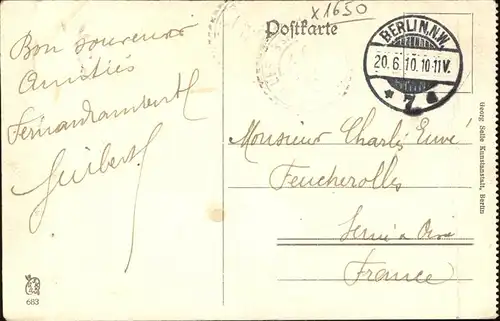 x1650
Postkarte
BERLIN, N.W.
20.6.10.10-11V.
* 7 a
Bon souvenir
Amitiés
Guibert
Monsieur Charles
Feucherolles
Seine & Oise
France
Georg Salle Kunstanstalt, Berlin
683